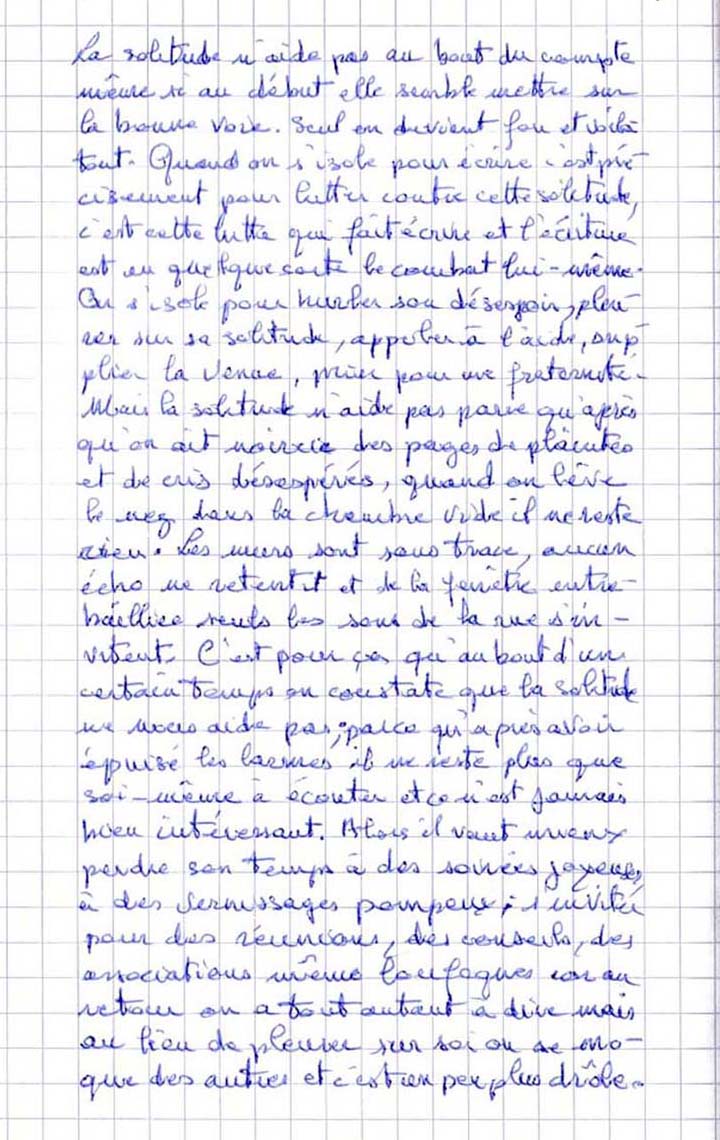 La solitude n'aide pas au bout du compte
même si au début elle semble mettre sur
la bonne voie. Seul on devient fou et voilà
tout. Quand on s'isole pour écrire c'est pré-
cisement pour lutter contre cette solitude,
c'est cette lutte qui fait écrire et l'écriture
est en quelque sorte le combat lui-même.
On s'isole pour hurler son désespoir, pleu-
rer sur sa solitude, appeler à l'aide, sup-
plier la venue, prier pour une fraternité.
Mais la solitude n'aide pas parce qu'après
qu'on ait noircie des pages de plaintes
et de cris désespérés, quand on lève
le nez dans la chambre vide il ne reste
rien. Les murs sont sans trace, aucun
écho ne retentit et de la fenêtre entre-
baillée seuls les sons de la rue s'in-
vitent. C'est pour ça qu'au bout d'un
certain temps on constate que la solitude
ne nous aide pas, parce qu'après avoir
épuisé les larmes il ne reste plus que
soi-même à écouter et ce n'est jamais
bien intéressant. Alors il vaut mieux
perdre son temps à des soirées joyeuses,
à des vernissages pompeux, s'inviter
pour des réunions, des conseils, des
associations même loufoques car au
retour on a tout autant à dire mais
au lieu de pleurer sur soi on se mo-
que des autres et c'est un peu plus drôle.